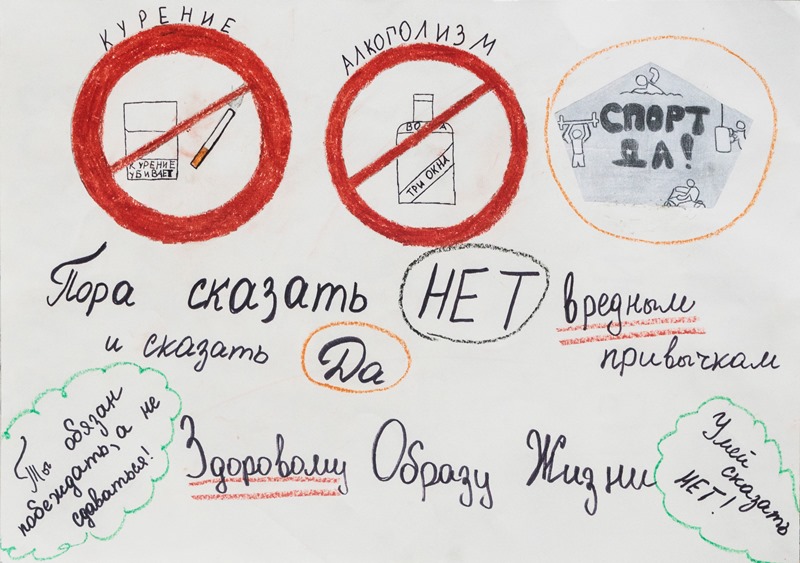 КУРЕНИЕ
КУРЕНИЕ
УБИВАЕТ
АЛКОГОЛИЗМ
ТРИ ОКНА
СПОРТ
ДА!
Пора сказать НЕТ вредным
привычкам
и сказать Да
Здоровому Образу Жизни
Ты обязан
побеждать, а не
сдаваться!
Умей
сказать
НЕТ!